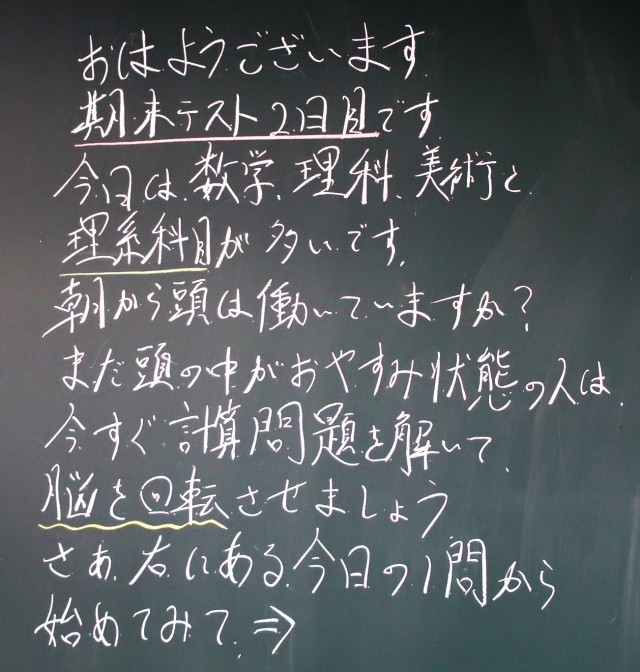 おはようございます.
期末テスト2日目です
今日は、数学、理科、美術と
理系科目が多いです。
朝から頭は働いていますか?
まだ頭の中がおやすみ状態の人は
今すぐ計算問題を解いて、
脳を回転させましょう
さぁ、右にある今日の1問から
始めてみて。⇒